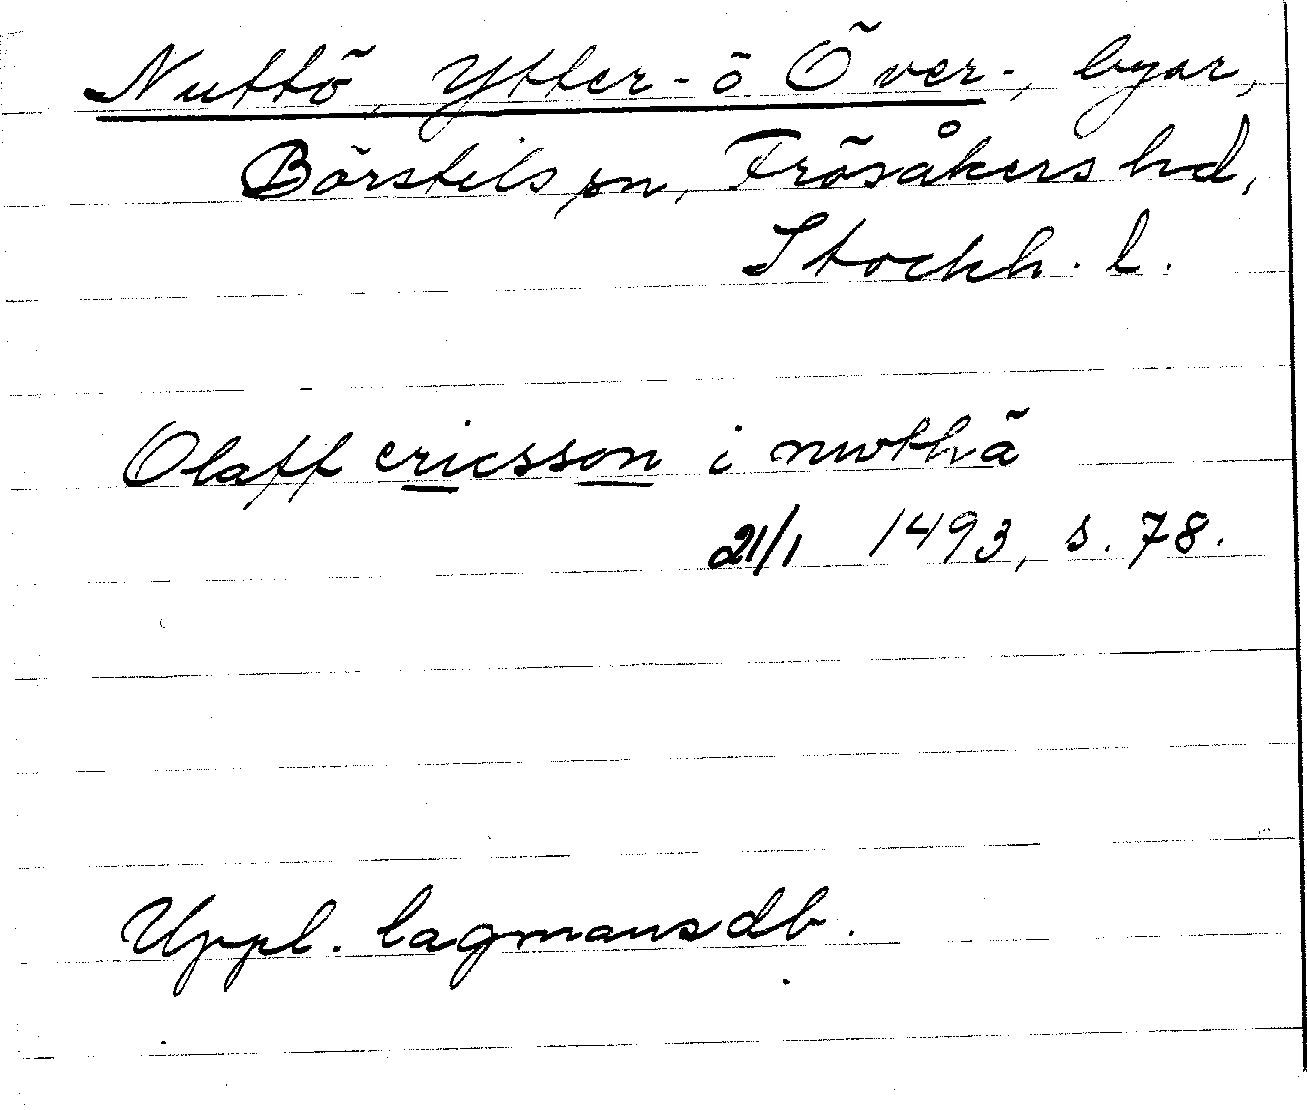 Nuttö, Ytter- o Över-, byar,
Börstils sn, Frösåkers hd,
Stockh. l.
Olaff ericsson i nwthä
21/1 1493, s. 78.
Uppl. lagmansdb.